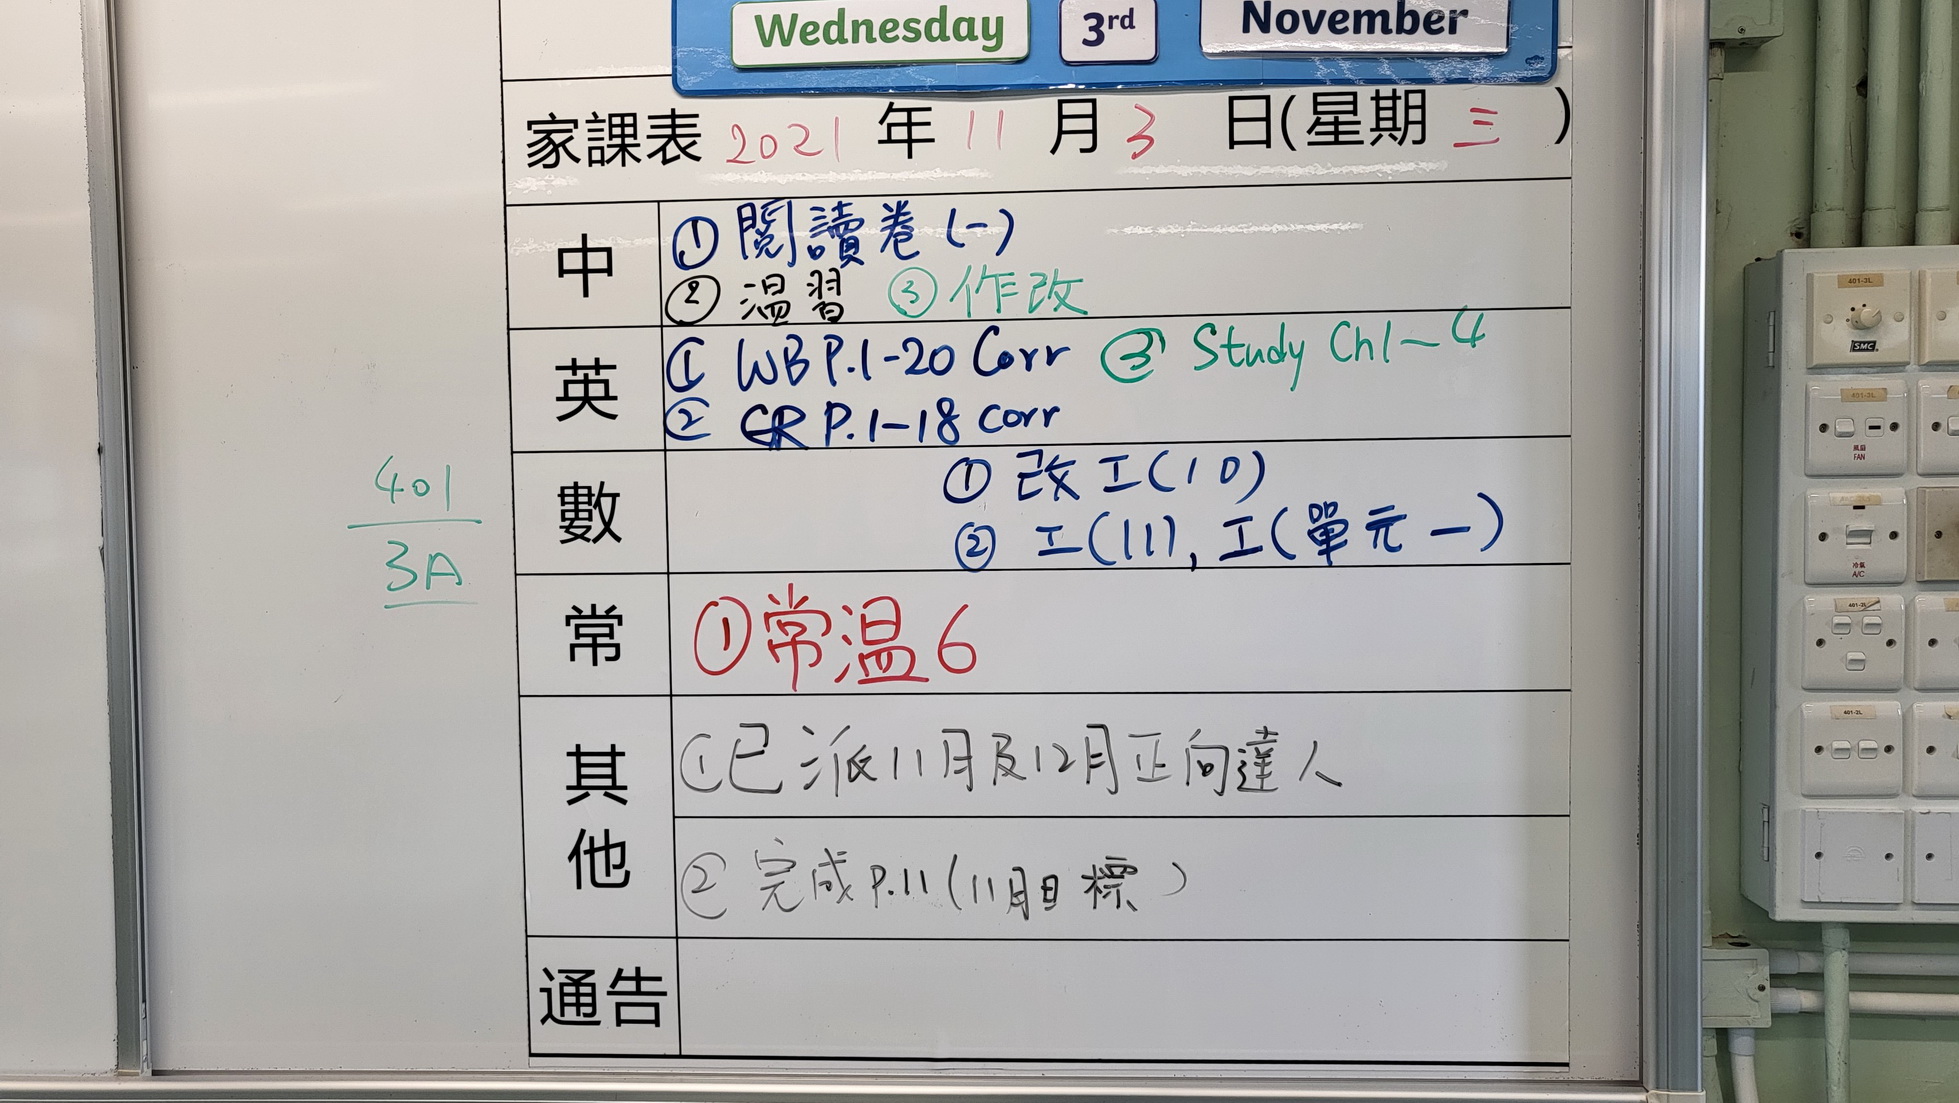 Wednesday 3rd November
家課表 2021 年 11 月 3 日(星期 三 )
中 ① 閱讀卷 (一)
② 溫習 ③ 作改
英 ① WB P.1-20 Corr ③ Study Ch1~4
② GR P.1-18 corr
401
3A
數 ① 改工(10)
② 工(11), 工(單元一)
常 ① 常溫6
其他 ① 已派11月及12月正向達人
② 完成P.11(11月目標)
通告
401-3L
SMC
401-3L
風扇
FAN
冷氣
A/C
401-2L
401-2L